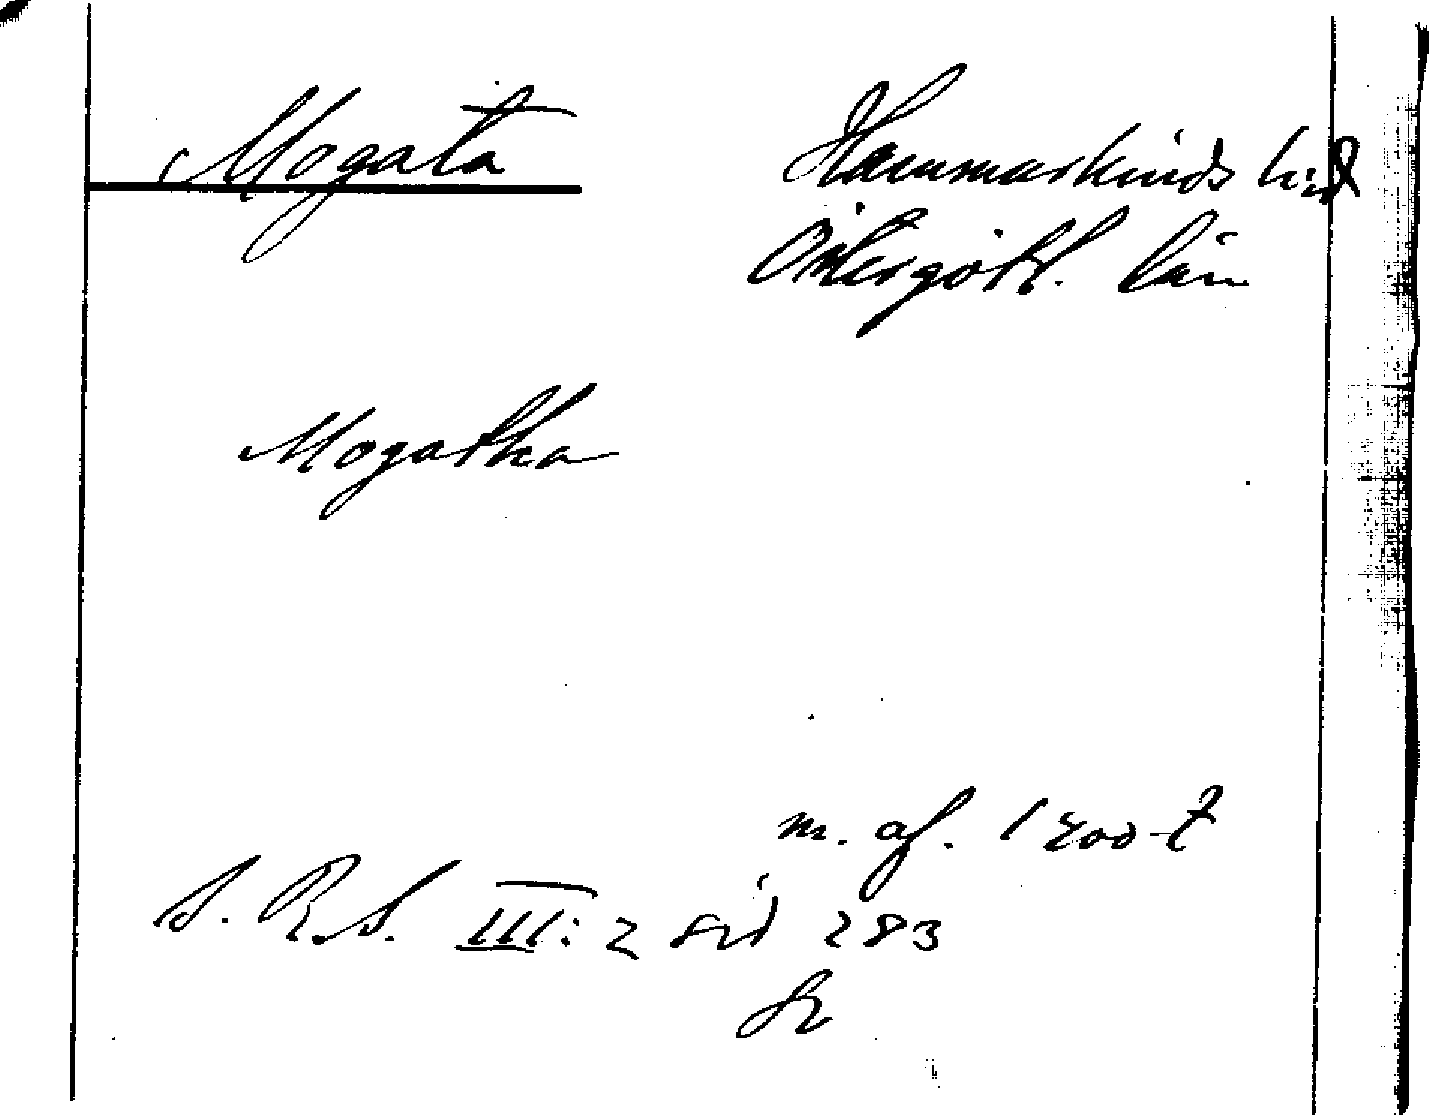 Mogata
Hammarkinds hd
Östergötl. län
Mogatha
m. af. 1400-t
S. R. S. III: 2 sid 283